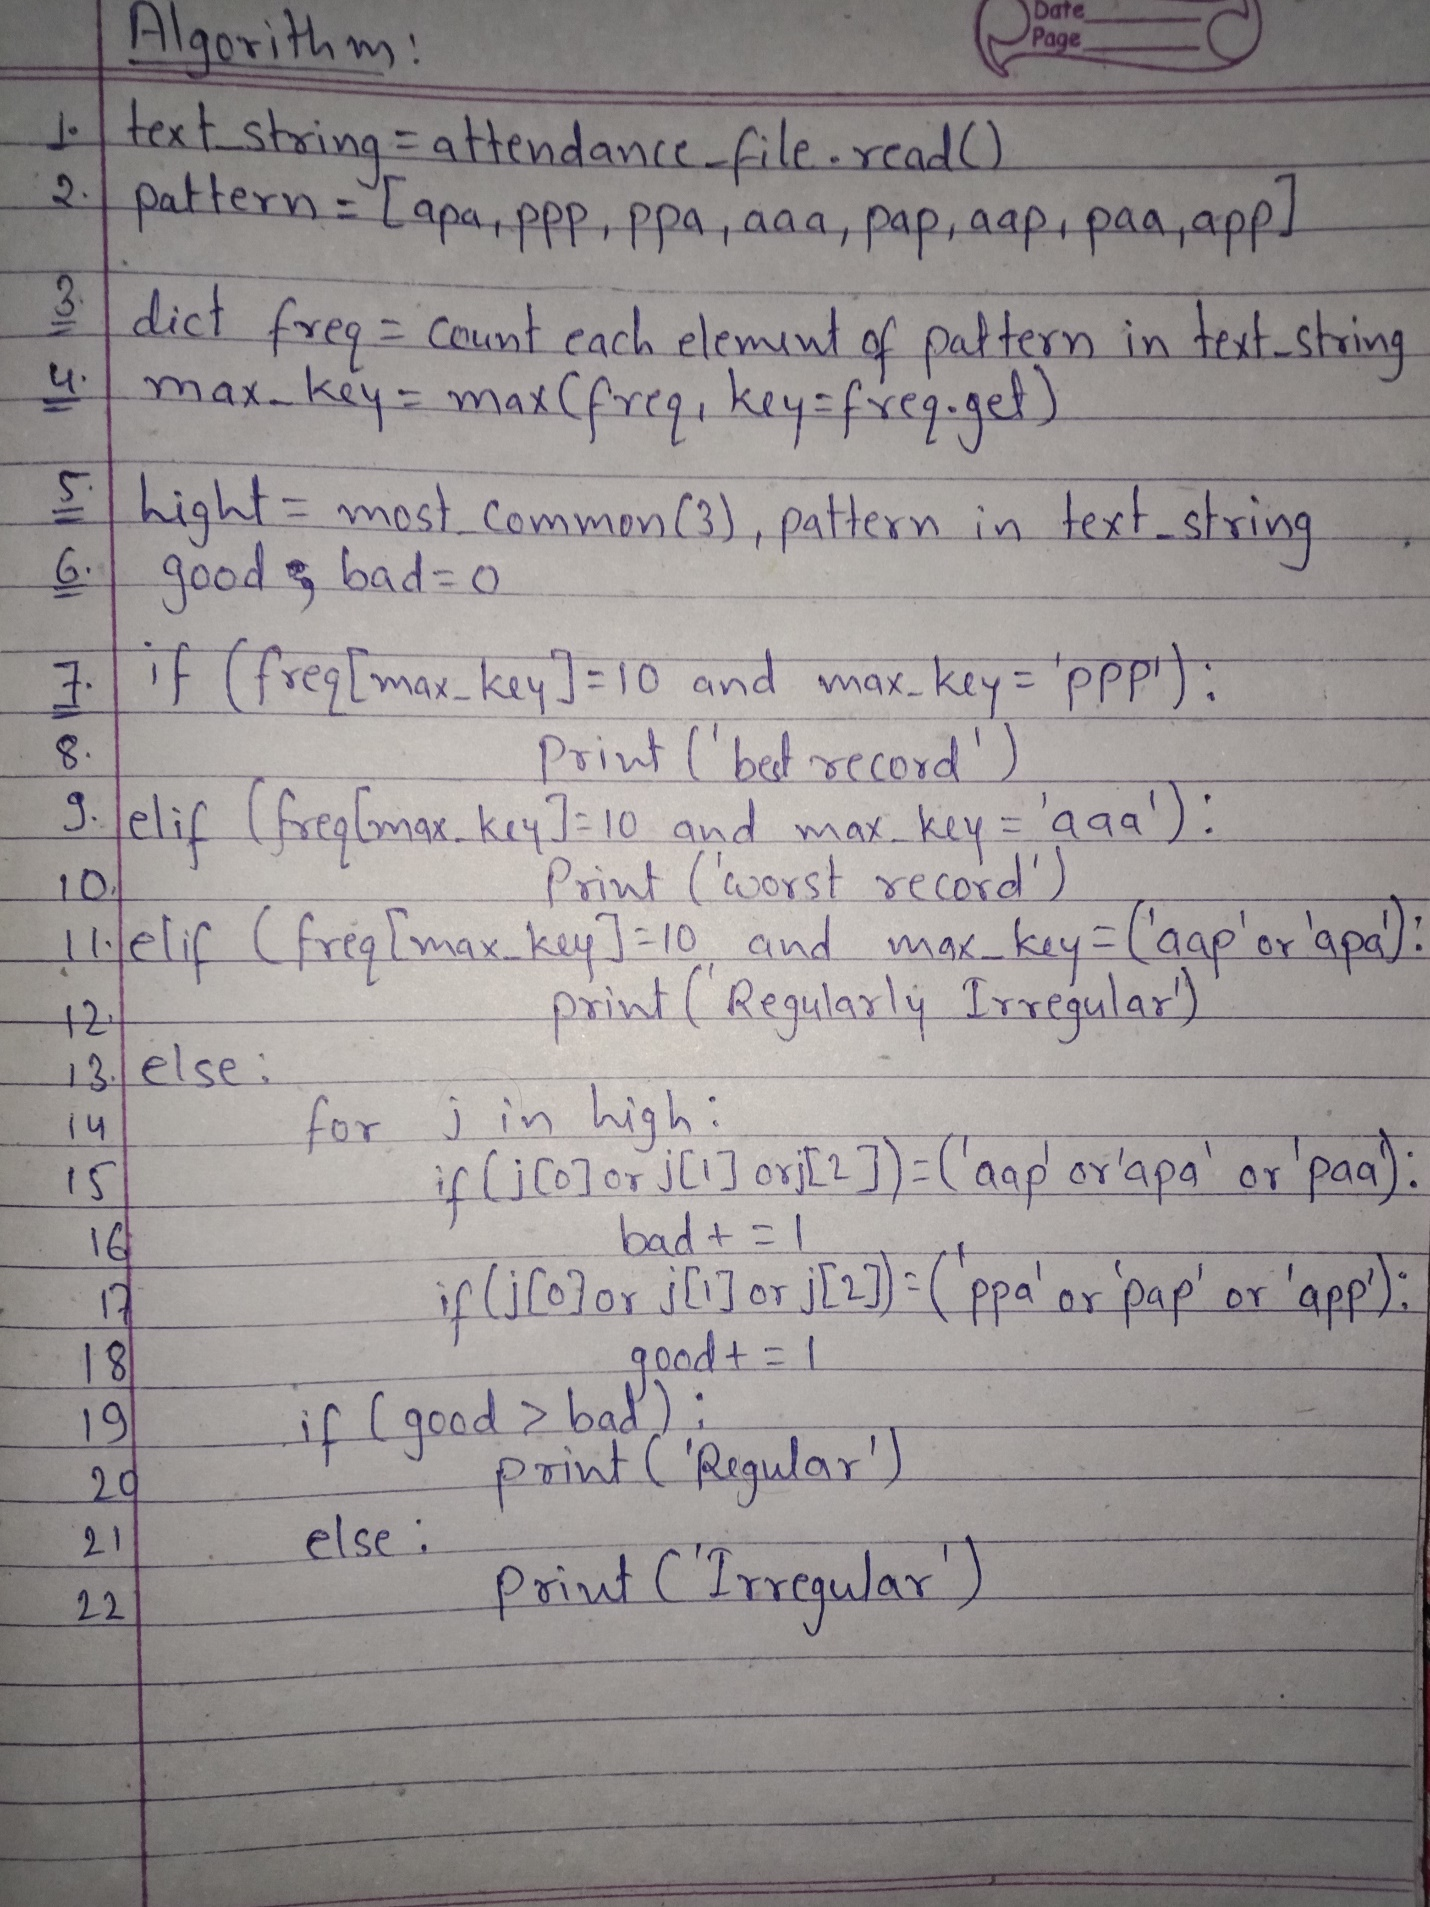 Date
Page
Algorithm:
1. text_string = attendance_file.read()
2. pattern = [apa, ppp, ppa, aaa, pap, aap, paa, app]
3. dict freq = count each element of pattern in text_string
4. max_key = max(freq, key=freq.get)
5. hight = most_common(3), pattern in text_string
6. good & bad=0
7. if (freq[max_key]=10 and max_key = 'ppp'):
8. Print ('best record')
9. elif (freq[max_key]=10 and max_key = 'aaa'):
10. Print ('worst record')
11. elif (freq[max_key]=10 and max_key=('aap' or 'apa'):
12. print ('Regularly Irregular')
13. else:
14 for j in high:
15 if (j[0] or j[1] or j[2])=('aap' or 'apa' or 'paa'):
16 bad+=1
17 if (j[0] or j[1] or j[2])=('ppa' or 'pap' or 'app'):
18 good+=1
19 if (good > bad):
20 print ('Regular')
21 else:
22 Print ('Irregular')